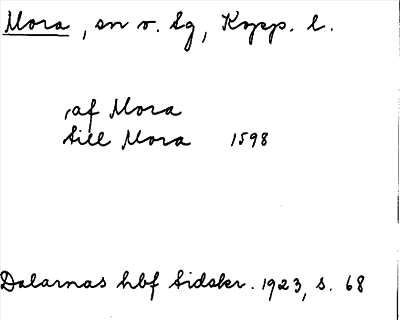 Mora, sn v. Sg, Kopp. l.
,af Mora
till Mora 1598
Dalarnas hbf tidskr. 1923, s. 68